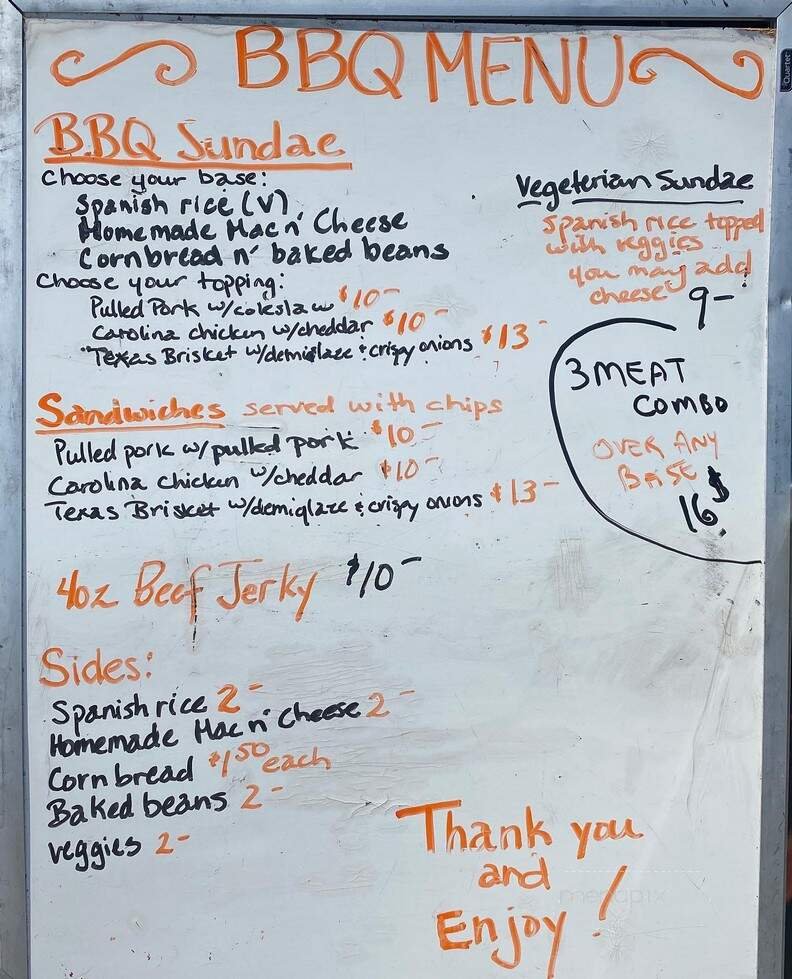 BBQ MENU
Quartet
B.B.Q Sundae
Choose your base:
Spanish rice (V)
Homemade Mac n' Cheese
Cornbread n' baked beans
Choose your topping:
Pulled Pork w/coleslaw $10-
Carolina chicken w/cheddar $10-
Texas Brisket w/demiglaze & crispy onions $13-
Vegeterian Sundae
Spanish rice topped
with veggies
you may add
cheese!
9-
3 MEAT
COMBO
OVER ANY
BASE
16$
Sandwiches served with chips
Pulled pork w/pulled pork $10-
Carolina chicken w/cheddar $10-
Texas Brisket w/demiglaze & crispy onions $13-
4oz Beef Jerky $10-
Sides:
Spanish rice 2-
Homemade Mac n' Cheese 2-
Corn bread $1.50 each
Baked beans 2-
veggies 2-
Thank you
and
Enjoy!
menupix